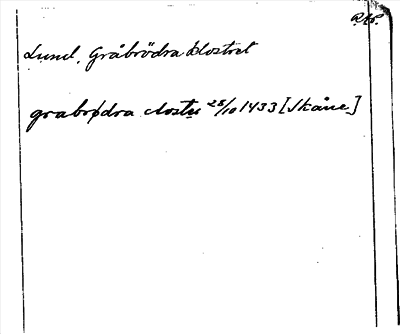 R.A.P.
Lund, Gråbrödraklostret
grabrødra closter 28/10 1433 [Skåne]